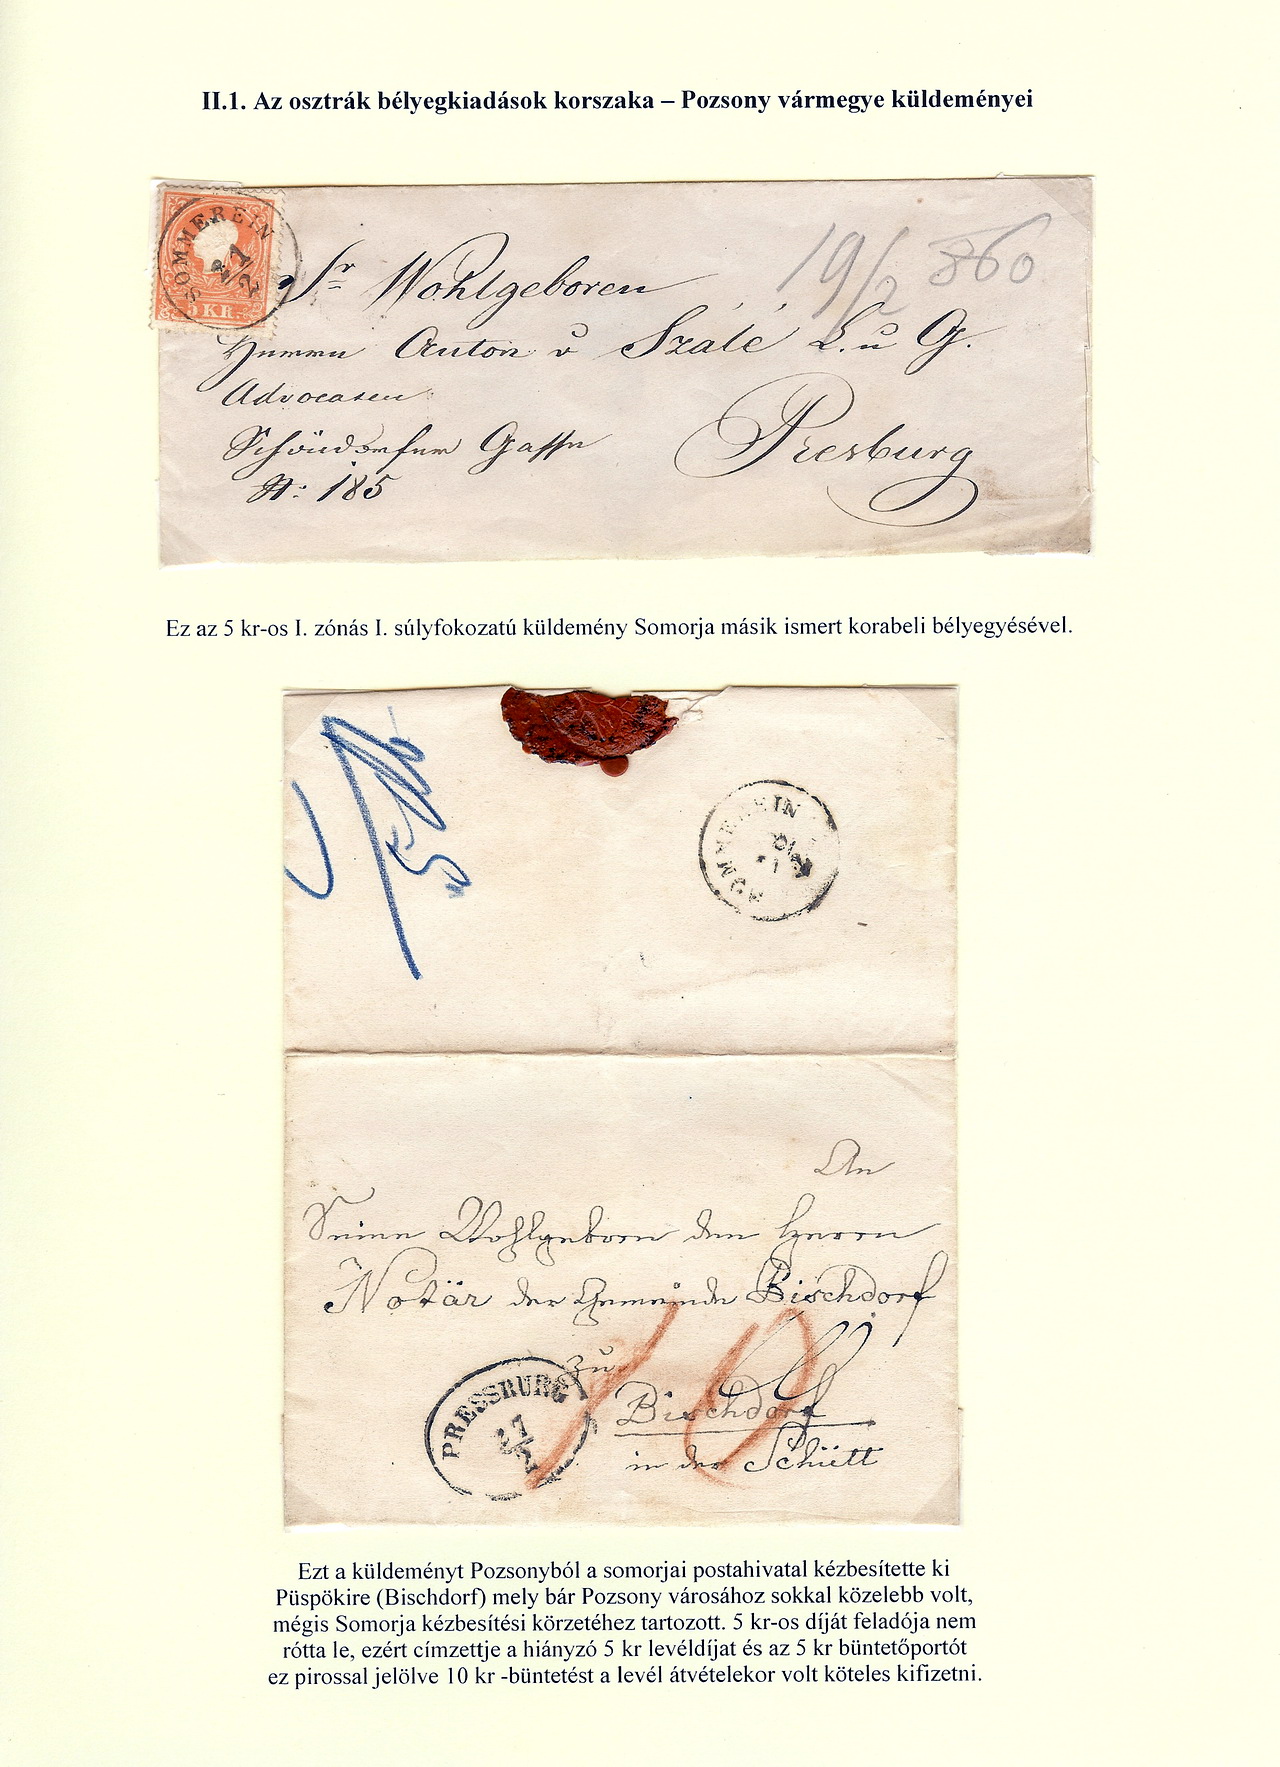 II.1. Az osztrák bélyegkiadások korszaka – Pozsony vármegye küldeményei
SOMMEREIN
21/2
5 KR.
19/2 860
Sr Wohlgeboren
Herrn Anton v Szálé L. u G.
Advocaten
Schöndorfer Gasse
N: 185
Presburg
Ez az 5 kr-os I. zónás I. súlyfokozatú küldemény Somorja másik ismert korabeli bélyegyésével.
SOMMEREIN
An
Seine Wohlgeborn dem Herrn
Notär der Gemeinde Bischdorf
zu
10
PRESSBURG
27/2
Bischdorf
in der Schütt
Ezt a küldeményt Pozsonyból a somorjai postahivatal kézbesítette ki
Püspökire (Bischdorf) mely bár Pozsony városához sokkal közelebb volt,
mégis Somorja kézbesítési körzetéhez tartozott. 5 kr-os díját feladója nem
rótta le, ezért címzettje a hiányzó 5 kr levéldíjat és az 5 kr büntetőportót
ez pirossal jelölve 10 kr -büntetést a levél átvételekor volt köteles kifizetni.